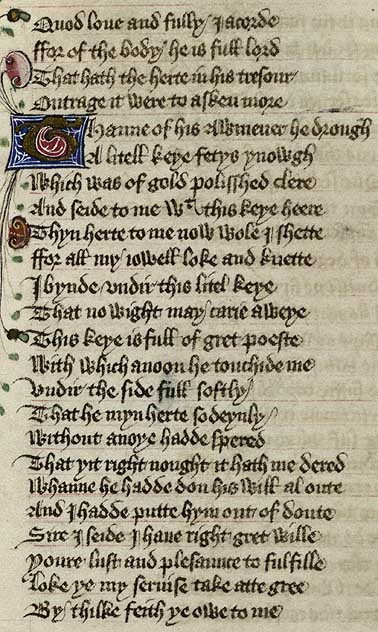 Quod loue and fully I acorde
ffor of the body he is full lord
That hath the herte in his tresour
Outrage it were to asken more
Thanne of his Awmener he drough
A litell keye fetys ynowgh
Which was of gold polisshed clere
And seide to me Wt this keye heere
Thyn herte to me now wole I shette
ffor all my iowell loke and knette
I bynde vndir this litel keye
That no wight may carie aweye
This keye is full of gret poeste
With which anoon he touchide me
Vndir the side full softly
That he myn herte sodeynly
Without anoye hadde spered
That yit right nought it hath me dered
Whanne he hadde don his will al oute
And I hadde putte hym out of doute
Sire I seide I haue right gret wille
Youre lust and plesaunce to fulfille
Loke ye my seruise take atte gree
By thilke feith ye owe to me